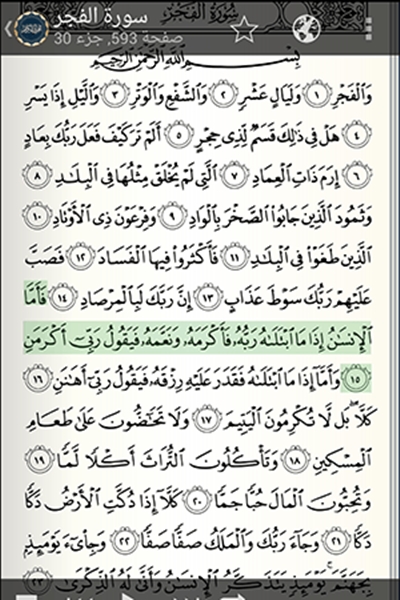 سورة الفجر
صفحة 593, جزء 30
سُورَةُ الْفَجْرِ
بِسْمِ اللَّهِ الرَّحْمَٰنِ الرَّحِيمِ
وَالْفَجْرِ ١ وَلَيَالٍ عَشْرٍ ٢ وَالشَّفْعِ وَالْوَتْرِ ٣ وَاللَّيْلِ إِذَا يَسْرِ
٤ هَلْ فِي ذَٰلِكَ قَسَمٌ لِّذِي حِجْرٍ ٥ أَلَمْ تَرَ كَيْفَ فَعَلَ رَبُّكَ بِعَادٍ
٦ إِرَمَ ذَاتِ الْعِمَادِ ٧ الَّتِي لَمْ يُخْلَقْ مِثْلُهَا فِي الْبِلَادِ ٨
وَثَمُودَ الَّذِينَ جَابُوا الصَّخْرَ بِالْوَادِ ٩ وَفِرْعَوْنَ ذِي الْأَوْتَادِ ١٠
الَّذِينَ طَغَوْا فِي الْبِلَادِ ١١ فَأَكْثَرُوا فِيهَا الْفَسَادَ ١٢ فَصَبَّ
عَلَيْهِمْ رَبُّكَ سَوْطَ عَذَابٍ ١٣ إِنَّ رَبَّكَ لَبِالْمِرْصَادِ ١٤ فَأَمَّا
الْإِنسَٰنُ إِذَا مَا ابْتَلَىٰهُ رَبُّهُ فَأَكْرَمَهُ وَنَعَّمَهُ فَيَقُولُ رَبِّي أَكْرَمَنِ
١٥ وَأَمَّا إِذَا مَا ابْتَلَىٰهُ فَقَدَرَ عَلَيْهِ رِزْقَهُ فَيَقُولُ رَبِّي أَهَٰنَنِ ١٦
كَلَّا ۖ بَل لَّا تُكْرِمُونَ الْيَتِيمَ ١٧ وَلَا تَحَٰٓضُّونَ عَلَىٰ طَعَامِ
الْمِسْكِينِ ١٨ وَتَأْكُلُونَ التُّرَاثَ أَكْلًا لَّمًّا ١٩
وَتُحِبُّونَ الْمَالَ حُبًّا جَمًّا ٢٠ كَلَّا إِذَا دُكَّتِ الْأَرْضُ دَكًّا
دَكًّا ٢١ وَجَاءَ رَبُّكَ وَالْمَلَكُ صَفًّا صَفًّا ٢٢ وَجِا۟يءَ يَوْمَئِذٍ
بِجَهَنَّمَ ۚ يَوْمَئِذٍ يَتَذَكَّرُ الْإِنسَٰنُ وَأَنَّىٰ لَهُ الذِّكْرَىٰ ٢٣